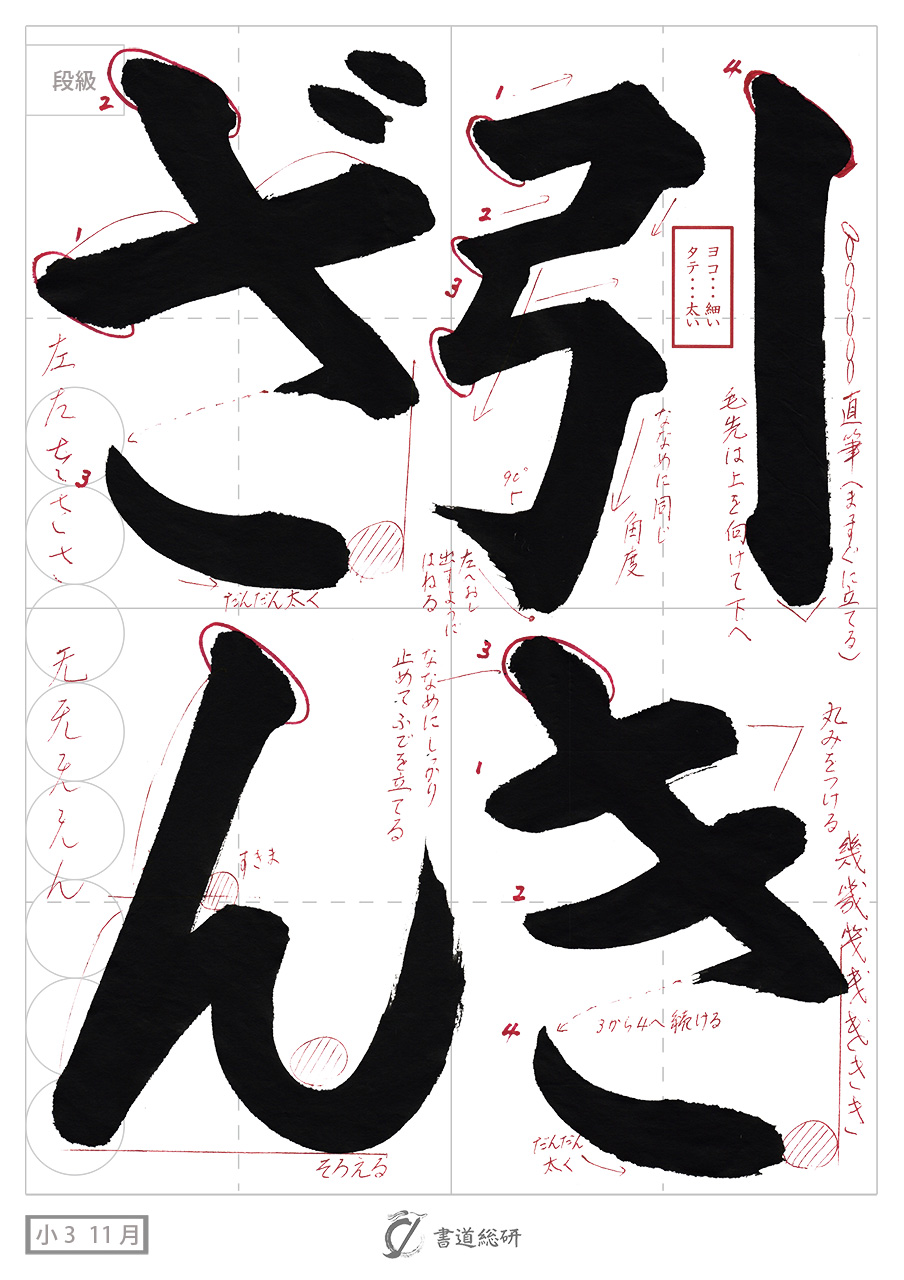 引き
ざん
段級
4
1
2
3
ヨコ・・・細い
タテ・・・太い
直筆(まっすぐに立てる)
毛先は上を向けて下へ
ななめに同じ
角度
90°
左へおし
出すように
はねる
2
1
3
左
だんだん太く
3
1
2
4
丸みをつける
幾
き
3から4へ続ける
だんだん
太く
ななめにしっかり
止めてふでを立てる
すきま
そろえる
无
ん
小3 11月
書道総研